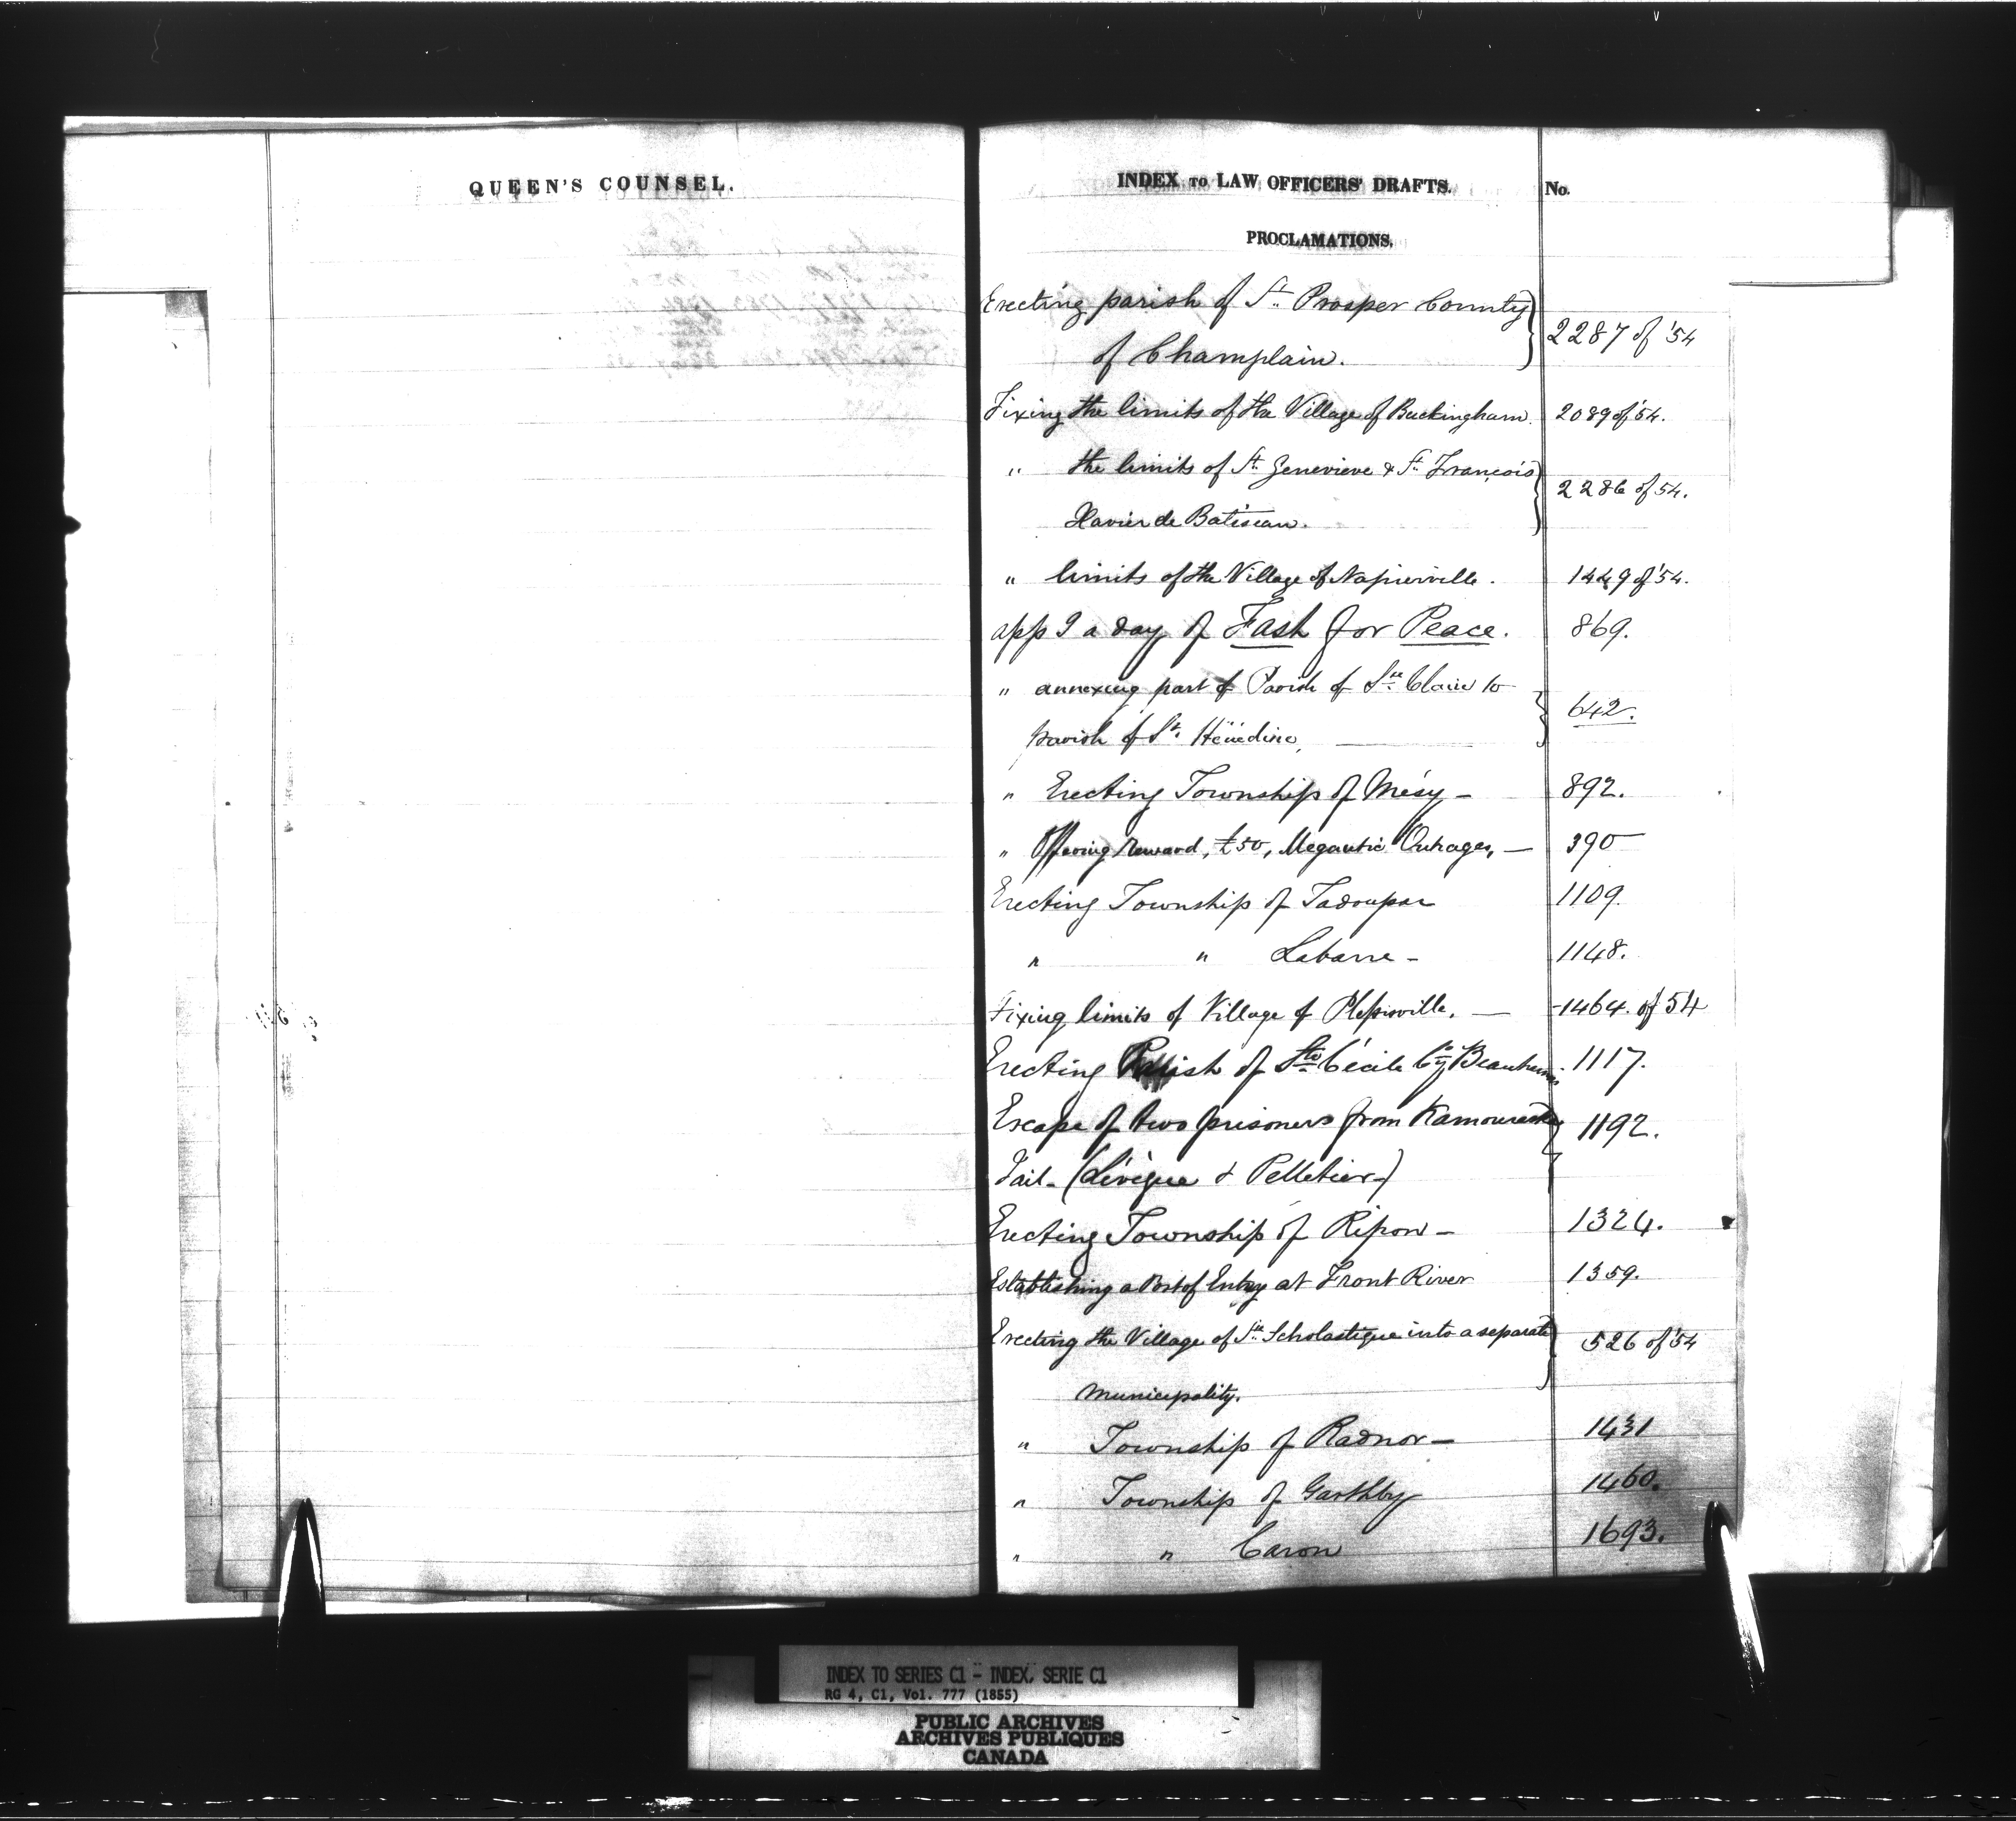 QUEEN'S COUNSEL.
INDEX TO LAW OFFICERS' DRAFTS. No.
PROCLAMATIONS.
Erecting parish of St. Prosper County
of Champlain. } 2287 of '54
Fixing the limits of the Village of Buckingham. 2089 of '54.
" the limits of St. Genevieve & St. François
Xavier de Batiscan. } 2286 of 54.
" limits of the Village of Napierville. 1449 of '54.
app g a day of Fast for Peace. 869.
" annexing part of Parish of Ste. Claire to
parish of St. Hénédine, } 642.
" Erecting Township of Mésy - 892.
" Offering Reward, £50, Megantic Outrages, - 390
Erecting Township of Jadoupar 1109.
" " Labarre - 1148.
Fixing limits of Village of Plessisville. - 1464. of 54
Erecting Parish of Ste Cécile Cty Beauharnois 1117.
Escape of two prisoners from Kamouraska
Jail - (Lévêque & Pelletier -) } 1192.
Erecting Township of Ripon - 1324.
Establishing a Port of Entry at Front River 1359.
Erecting the Village of Ste. Scholastique into a separate
Municipality. } 526 of '54
" Township of Radnor - 1431
" Township of Garthby 1460.
" " Caron 1693.
INDEX TO SERIES C1 - INDEX, SERIE C1
RG 4, C1, Vol. 777 (1855)
PUBLIC ARCHIVES
ARCHIVES PUBLIQUES
CANADA